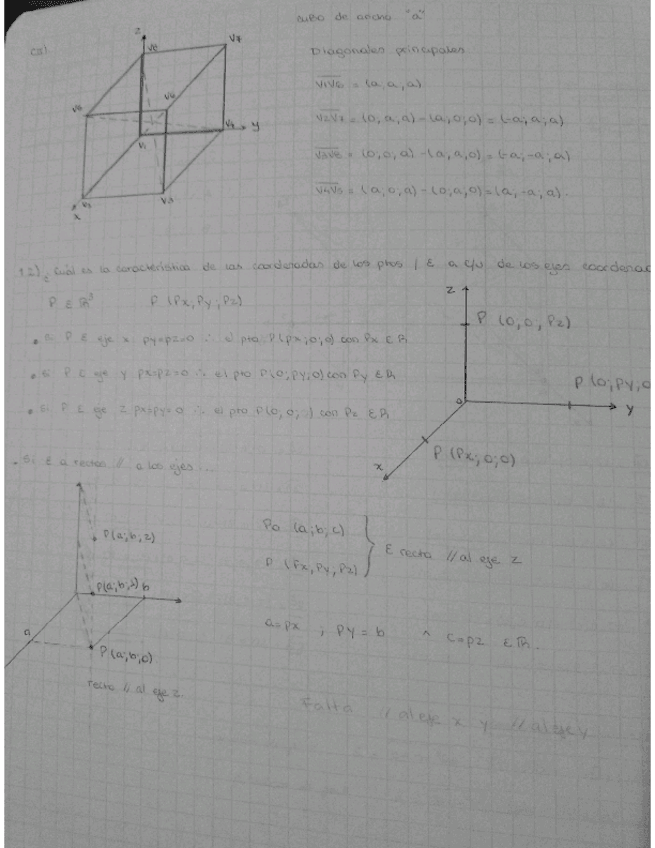 cubo de ancho "a"
Diagonales principales
V1V6 = (a, a, a)
V2V7 = (0, a, a) - (a, 0, 0) = (-a; a; a)
= (0, 0, a) - (a, a, 0) = (-a, -a; a)
= (a, 0, a) - (0; a; 0) = (a, -a; a).
z
V7
V1
y
x
12) ¿ cuál es la característica de las coordenadas de los ptos / ε a c/u de los ejes
P ε R³ P (Px, Py, Pz)
• si P ε eje x py=pz=0 ∴ el pto P(px; 0; 0) con Px ε R
• si P ε eje y px=pz=0 ∴ el pto P(0; py; 0) con Py ε R
• si P ε eje z px=py=0 ∴ el pto P(0, 0; ) con Pz ε R
z
P (0, 0, Pz)
P (0; Py, 0
y
x
P (Px; 0; 0)
• si ε a rectas // a los ejes...
P(a; b, z)
b
a
P(a; b; 0)
recta // al eje z
Po (a; b; c)
P (Px, Py, Pz)
ε recta // al eje z
a=px ; py = b ^ c=pz ε R.
Falta // al eje x y // al eje y